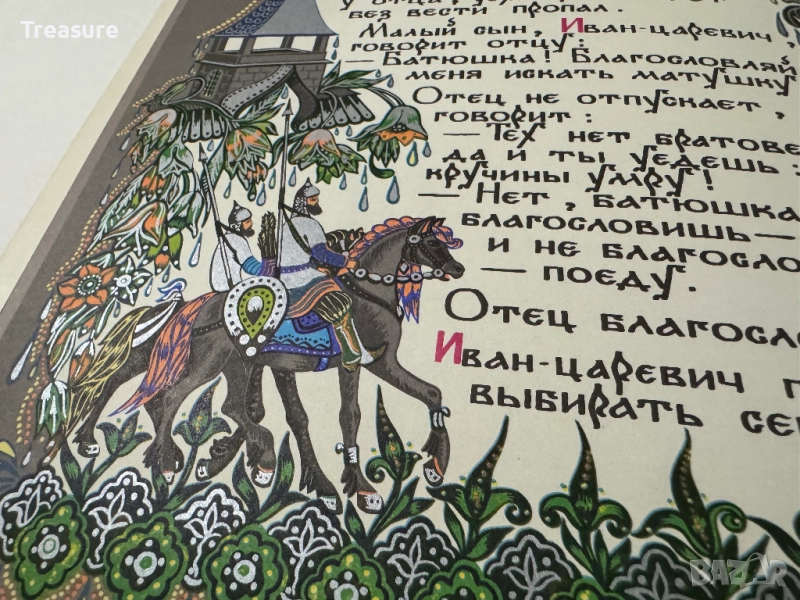 Treasure
у отца,
без вести пропал.
Малый сын, Иван-царевич,
говорит отцу:
— Батюшка! Благословляй
меня искать матушку
Отец не отпускает,
говорит:
— Тех нет братове
да и ты уедешь:
кручины умру!
— Нет, батюшка
благословишь —
и не благосло
— поеду.
Отец благосло
Иван-царевич п
выбирать се
BAZAR